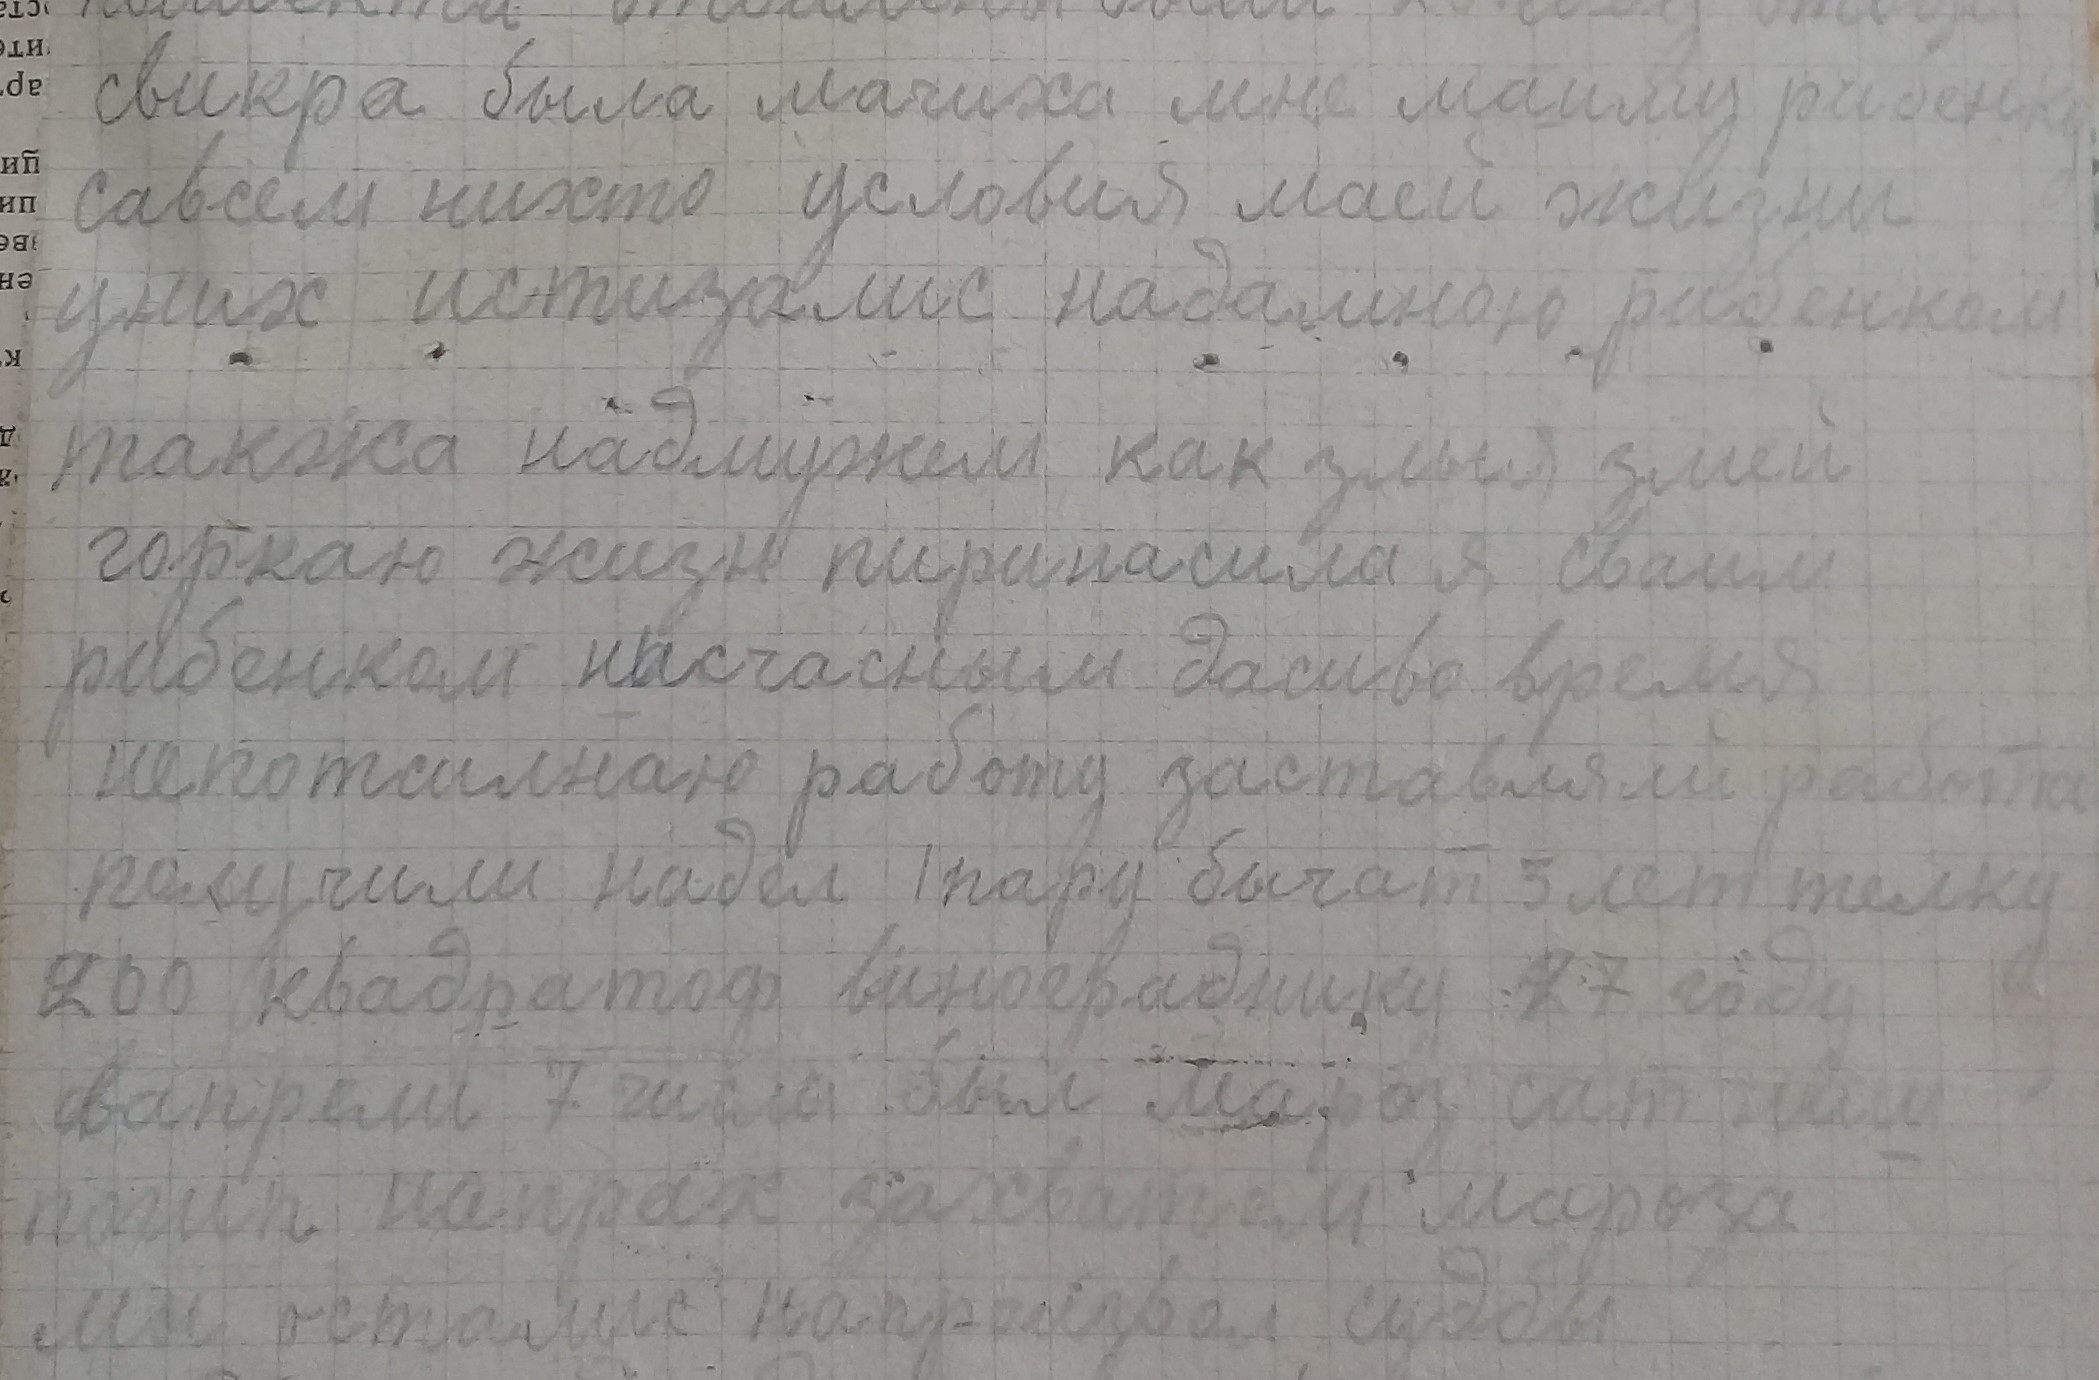 свикра была мачиха мне маиму рибенку
савсем нихто условия маей жизни
уних истизалис надамною рибенком
такжа надмужем как злыя змей
горкаю жизн пиринасила я сваим
рибенком нисчасным дасиво время
непотсилнаю работу заставляли работа
получили надел 1 пару бычат 3 лет телку
200 квадратоф винограднику 27 году
ванрели 7 числа был мароз сатним
погип напрах захватам мароза
мы осталис напроизвол судбы